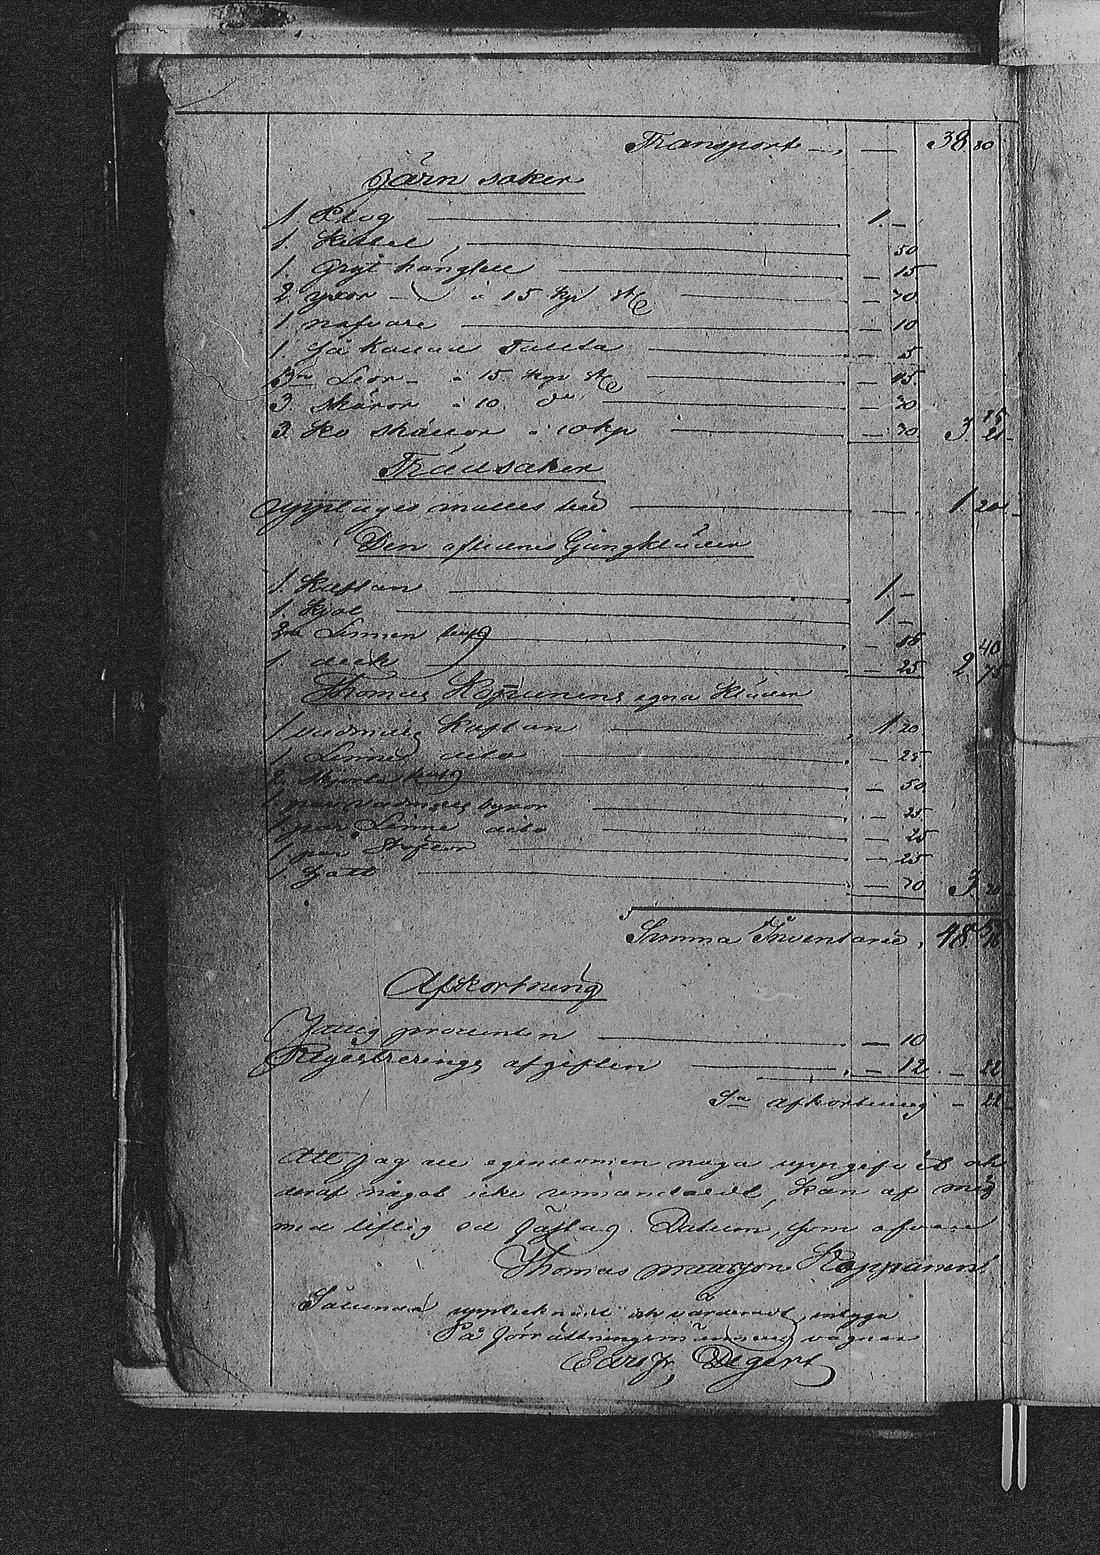 Transport — 38 80
Järn saker
1 Plog 1. —
1. Kittel — 50
1. Gryt hängsell — 15
2 yxor à 15 Kp st — 30
1 nafvare — 10
1. Så kallad — 5
3 Lior à 15 Kp st — 45
3 Skäror à 10 do — 30
3 Ko skällor à 10 Kp — 30 3
Trädsaker
upptages Med — 1 20
Den aflidnes Gångkläder
1 Kaftan 1 —
1 Kjol 1 —
Linnen — 15 40
1 — 25 2 75
Thomas Kopunens egna Kläder
1 vadmals Kaftan 1 20
1 Linne dito — 25
2 — 50
1 par vadmals byxor — 25
1 par Linne dito — 25
1 par Stöflor — 25
1 hatt — 20 3
Summa Inventarie 48
Afkortning
Fattig procenten — 10
Registrerings afgiften — 12 — 22
Sa afkortning — 22
Att Jag all egendomen noga uppgifvit och
deraf något icke undandolt, kan af mig
med liflig Ed fästas. Datum, som ofvan
Thomas Koppunen
Sålunda upptecknadt och värderadt, intyga
På förrättningsmännens vägnar
Degert